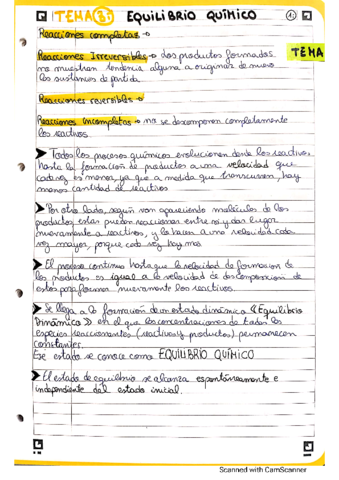 TEMA 3: EQUILIBRIO QUÍMICO ①
Reacciones completas →
Reacciones Irreversibles → dos productos formados
no muestran tendencia alguna a originar de nuevo
las sustancias de partida
TEMA
Reacciones reversibles →
Reacciones Incompletas → no se descomponen completamente
los reactivos.
➤ Todos los procesos químicos evolucionen desde los reactivos
hasta la formación de productos a una velocidad que
cada vez es menor, ya que a medida que transcurren, hay
menos cantidad de reactivos
➤ Por otro lado, según van apareciendo moléculas de los
productos estas pueden reaccionar entre si y dar lugar
nuevamente a reactivos, y lo hacen a una velocidad cada
vez mayor, porque cada vez hay mas
➤ El proceso continua hasta que la velocidad de formación de
los productos es igual a la velocidad de descomposición de
estos para formar nuevamente los reactivos.
➤ Se llega a la formación de un estado dinámico « Equilibrio
Dinámico » en el que las concentraciones de todas las
especies reaccionantes (reactivos y productos) permanecen
constantes.
Ese estado se conoce como EQUILIBRIO QUÍMICO
➤ El estado de equilibrio se alcanza espontáneamente e
independiente del estado inicial.
Scanned with CamScanner